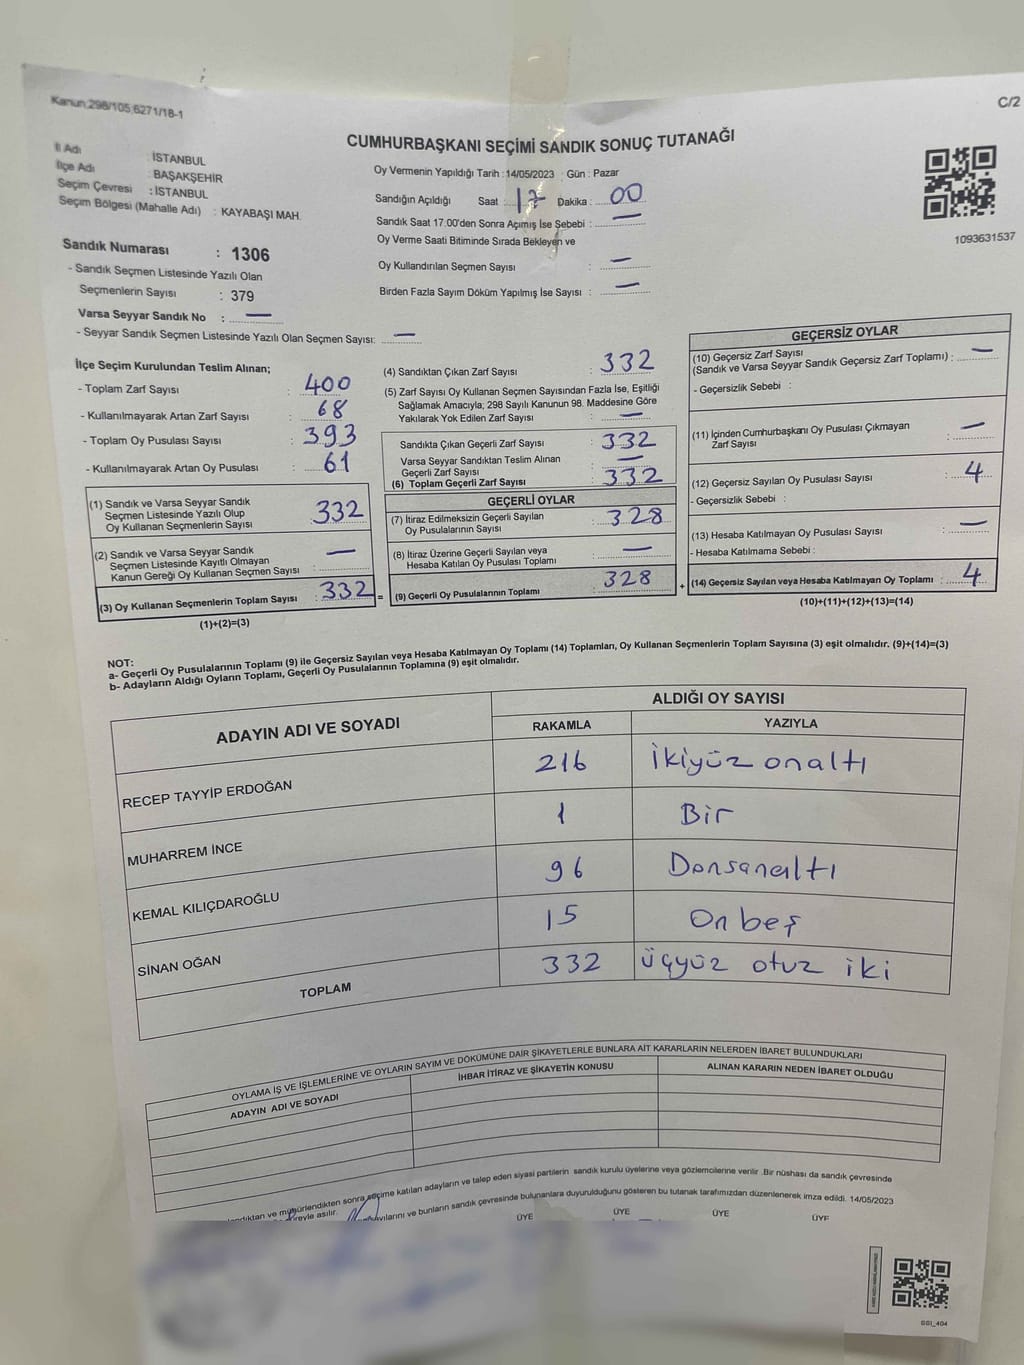 Kanun;298/105;6271/18-1
C/2
CUMHURBAŞKANI SEÇİMİ SANDIK SONUÇ TUTANAĞI
İl Adı : İSTANBUL
İlçe Adı : BAŞAKŞEHİR
Seçim Çevresi : İSTANBUL
Seçim Bölgesi (Mahalle Adı) : KAYABAŞI MAH.
Oy Vermenin Yapıldığı Tarih : 14/05/2023 Gün : Pazar
Sandığın Açıldığı Saat : 17 Dakika : 00
Sandık Saat 17:00'den Sonra Açımış İse Sebebi : —
Oy Verme Saati Bitiminde Sırada Bekleyen ve
Oy Kullandırılan Seçmen Sayısı : —
Birden Fazla Sayım Döküm Yapılmış İse Sayısı : —
1093631537
Sandık Numarası : 1306
- Sandık Seçmen Listesinde Yazılı Olan
Seçmenlerin Sayısı : 379
Varsa Seyyar Sandık No : —
- Seyyar Sandık Seçmen Listesinde Yazılı Olan Seçmen Sayısı: —
İlçe Seçim Kurulundan Teslim Alınan;
- Toplam Zarf Sayısı : 400
- Kullanılmayarak Artan Zarf Sayısı : 68
- Toplam Oy Pusulası Sayısı : 393
- Kullanılmayarak Artan Oy Pusulası : 61
(1) Sandık ve Varsa Seyyar Sandık
Seçmen Listesinde Yazılı Olup
Oy Kullanan Seçmenlerin Sayısı : 332
(2) Sandık ve Varsa Seyyar Sandık
Seçmen Listesinde Kayıtlı Olmayan
Kanun Gereği Oy Kullanan Seçmen Sayısı : —
(3) Oy Kullanan Seçmenlerin Toplam Sayısı : 332 =
(1)+(2)=(3)
(4) Sandıktan Çıkan Zarf Sayısı : 332
(5) Zarf Sayısı Oy Kullanan Seçmen Sayısından Fazla İse, Eşitliği
Sağlamak Amacıyla; 298 Sayılı Kanunun 98. Maddesine Göre
Yakılarak Yok Edilen Zarf Sayısı : —
Sandıkta Çıkan Geçerli Zarf Sayısı : 332
Varsa Seyyar Sandıktan Teslim Alınan
Geçerli Zarf Sayısı : —
(6) Toplam Geçerli Zarf Sayısı : 332
GEÇERLİ OYLAR
(7) İtiraz Edilmeksizin Geçerli Sayılan
Oy Pusulalarının Sayısı : 328
(8) İtiraz Üzerine Geçerli Sayılan veya
Hesaba Katılan Oy Pusulası Toplamı : —
(9) Geçerli Oy Pusulalarının Toplamı : 328 +
GEÇERSİZ OYLAR
(10) Geçersiz Zarf Sayısı
(Sandık ve Varsa Seyyar Sandık Geçersiz Zarf Toplamı) : —
- Geçersizlik Sebebi :
(11) İçinden Cumhurbaşkanı Oy Pusulası Çıkmayan
Zarf Sayısı : —
(12) Geçersiz Sayılan Oy Pusulası Sayısı : 4
- Geçersizlik Sebebi :
(13) Hesaba Katılmayan Oy Pusulası Sayısı : —
- Hesaba Katılmama Sebebi :
(14) Geçersiz Sayılan veya Hesaba Katılmayan Oy Toplamı : 4
(10)+(11)+(12)+(13)=(14)
NOT:
a- Geçerli Oy Pusulalarının Toplamı (9) ile Geçersiz Sayılan veya Hesaba Katılmayan Oy Toplamı (14) Toplamları, Oy Kullanan Seçmenlerin Toplam Sayısına (3) eşit olmalıdır. (9)+(14)=(3)
b- Adayların Aldığı Oyların Toplamı, Geçerli Oy Pusulalarının Toplamına (9) eşit olmalıdır.
ADAYIN ADI VE SOYADI
ALDIĞI OY SAYISI
RAKAMLA YAZIYLA
RECEP TAYYİP ERDOĞAN 216 İkiyüz onaltı
MUHARREM İNCE 1 Bir
KEMAL KILIÇDAROĞLU 96 Donsanaltı
SİNAN OĞAN 15 On beş
TOPLAM 332 üçyüz otuz iki
OYLAMA İŞ VE İŞLEMLERİNE VE OYLARIN SAYIM VE DÖKÜMÜNE DAİR ŞİKAYETLERLE BUNLARA AİT KARARLARIN NELERDEN İBARET BULUNDUKLARI
ADAYIN ADI VE SOYADI İHBAR İTİRAZ VE ŞİKAYETİN KONUSU ALINAN KARARIN NEDEN İBARET OLDUĞU
mühürlendikten sonra seçime katılan adayların ve talep eden siyasi partilerin sandık kurulu üyelerine veya gözlemcilerine verilir .Bir nüshası da sandık çevresinde
asılır. ve bunların sandık çevresinde bulunanlara duyurulduğunu gösteren bu tutanak tarafımızdan düzenlenerek imza edildi. 14/05/2023
ÜYE ÜYE ÜYE ÜYE
SSI_404